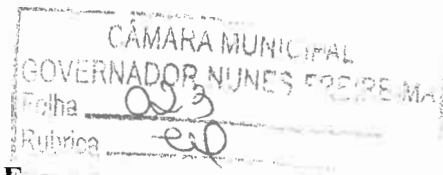 CÂMARA MUNICIPAL
GOVERNADOR NUNES FREIRE-MA
Folha 023
Rubrica